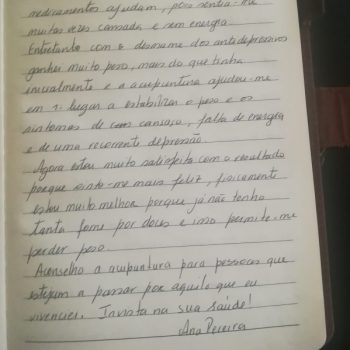 medicamentos ajudam, pois sentia-me
muitas vezes cansada e sem energia.
Entretanto com o desmame dos antidepressivos
ganhei muito peso, mais do que tinha
inicialmente e a acupuntura ajudou-me
em 1º lugar a estabilizar o peso e os
sintomas de cansaço, falta de energia
e de uma recorrente depressão.
Agora estou muito satisfeita com o resultado
porque sinto-me mais feliz, fisicamente
estou muito melhor porque já não tenho
tanta fome por doces e isso permite-me
perder peso.
Aconselho a acupuntura para pessoas que
estejam a passar por aquilo que eu
vivenciei. Invista na sua saúde!
Ana Pereira